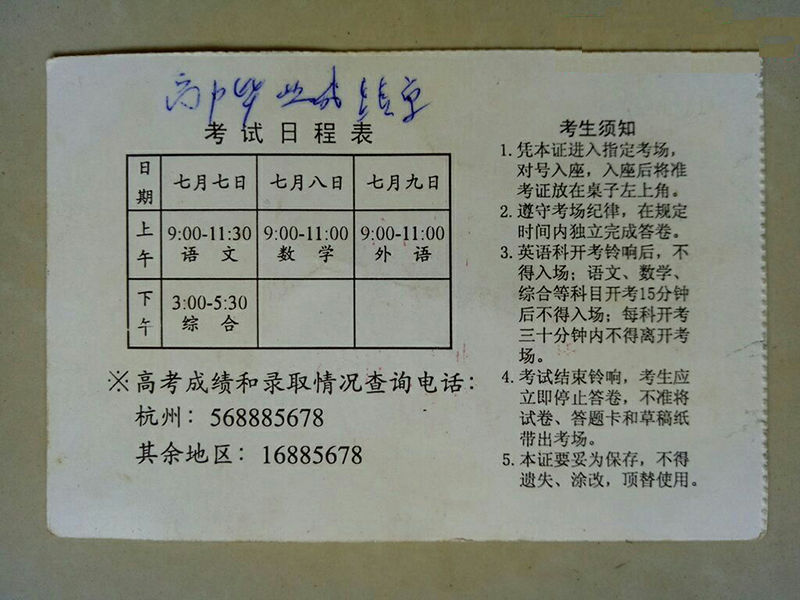 高中毕业成绩单
考试日程表
日期 七月七日 七月八日 七月九日
上午 9:00-11:30 9:00-11:00 9:00-11:00
语文 数学 外语
下午 3:00-5:30
综合
※高考成绩和录取情况查询电话：
杭州：568885678
其余地区：16885678
考生须知
1.凭本证进入指定考场，
对号入座，入座后将准
考证放在桌子左上角。
2.遵守考场纪律，在规定
时间内独立完成答卷。
3.英语科开考铃响后，不
得入场；语文、数学、
综合等科目开考15分钟
后不得入场；每科开考
三十分钟内不得离开考
场。
4.考试结束铃响，考生应
立即停止答卷，不准将
试卷、答题卡和草稿纸
带出考场。
5.本证要妥为保存，不得
遗失、涂改，顶替使用。